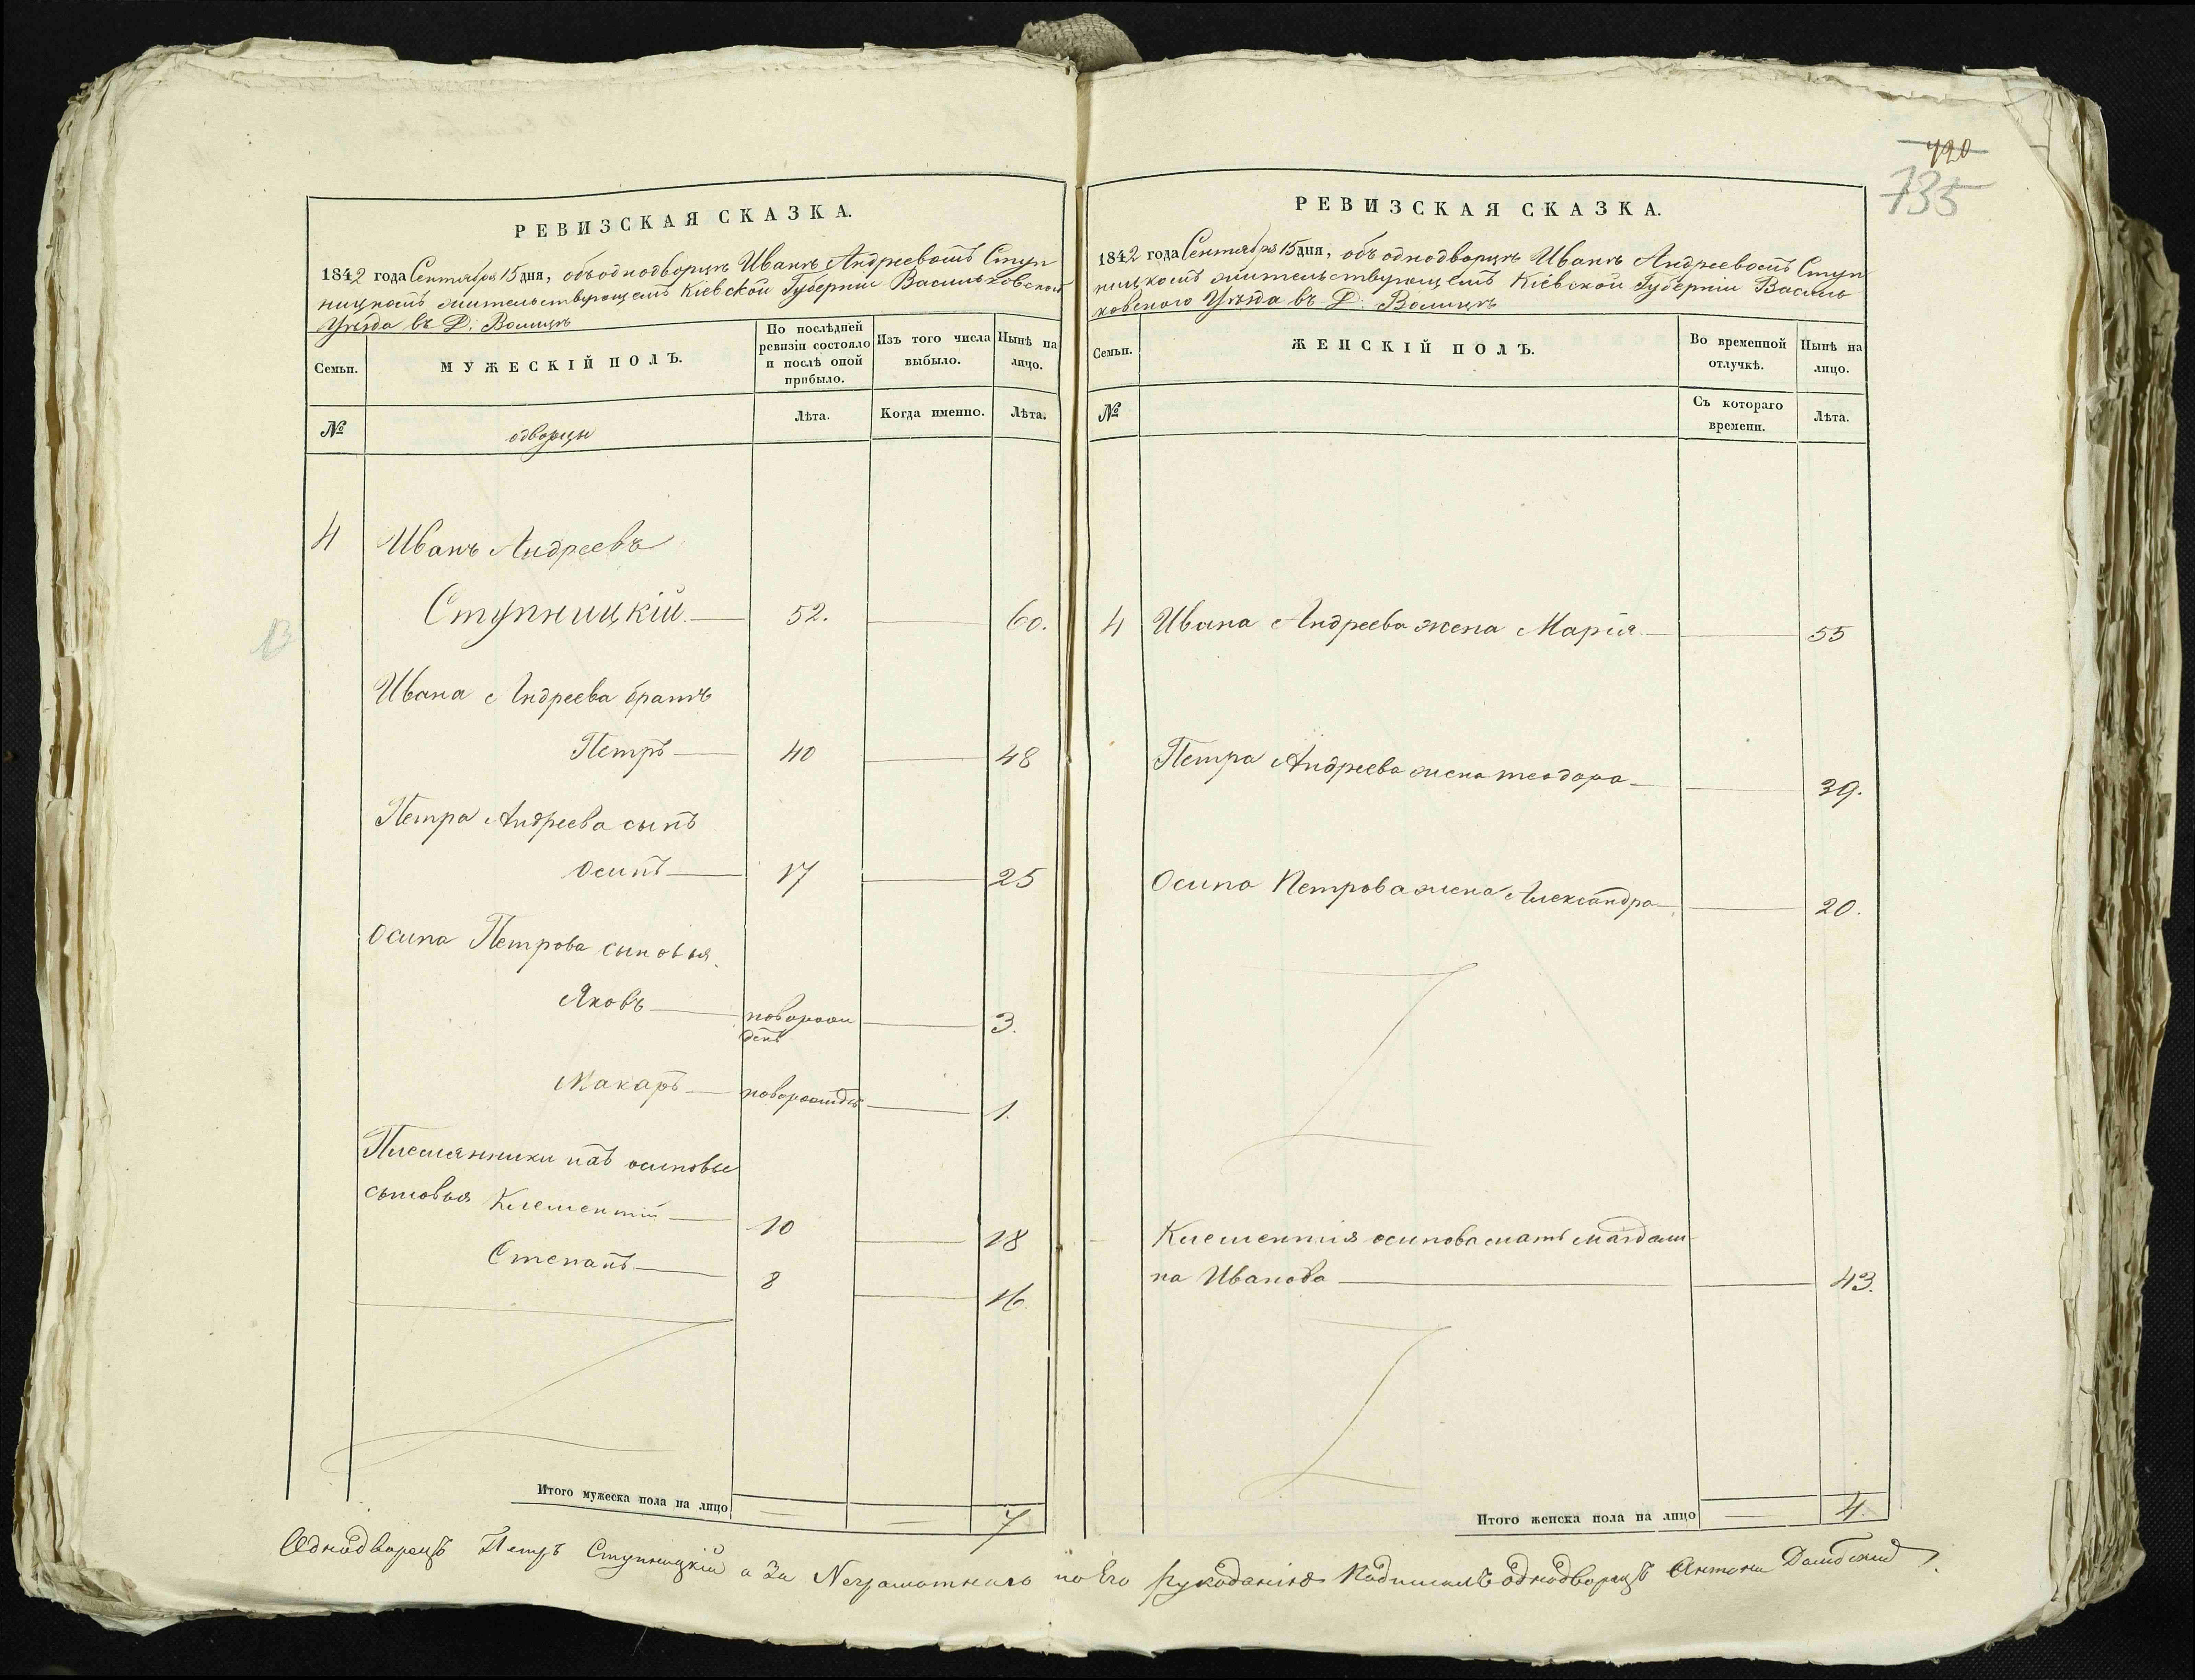 РЕВИЗСКАЯ СКАЗКА.
1842 года Сентября 15 дня, объ однодворцѣ Иванѣ Андреевомъ Ступ
ницкомъ жительствующемъ Кіевской Губерніи Васильковского
Уѣзда въ Д. Волицѣ
Семьи.
МУЖЕСКІЙ ПОЛЪ.
По послѣдней
ревизіи состояло
и послѣ оной
прибыло.
Изъ того числа
выбыло.
Нынѣ на
лицо.
№
одворцы
Лѣта.
Когда именно.
Лѣта.
4 Иванъ Андреевъ
Ступницкій 52. 60.
Ивана Андреева братъ
Петръ 40 48
Петра Андреева сынъ
Осипъ 17 25
Осипа Петрова сыновья
Яковъ новорож
денъ 3.
Макаръ новорожд 1.
Племянники осиповы
сыновья Клементій 10 18
Степанъ 8 16.
Итого мужеска пола на лицо 7
420
735
РЕВИЗСКАЯ СКАЗКА.
1842 года Сентября 15 дня, объ однодворцѣ Иванѣ Андреевомъ Ступ
ницкомъ жительствующемъ Кіевской Губерніи Василь
ковского Уѣзда въ Д. Волицѣ
Семьи.
ЖЕНСКІЙ ПОЛЪ.
Во временной
отлучкѣ.
Нынѣ на
лицо.
№
Съ котораго
времени.
Лѣта.
4 Ивана Андреева жена Марія 55
Петра Андреева жена теодора 39.
Осипа Петрова жена Александра 20.
Клементія осипова мать магдали
на Иванова 43.
Итого женска пола на лицо 4.
Однодворецъ Петръ Ступницкій а За Неграмотнаго по Его рукоданію Подписалъ однодворецъ Антони